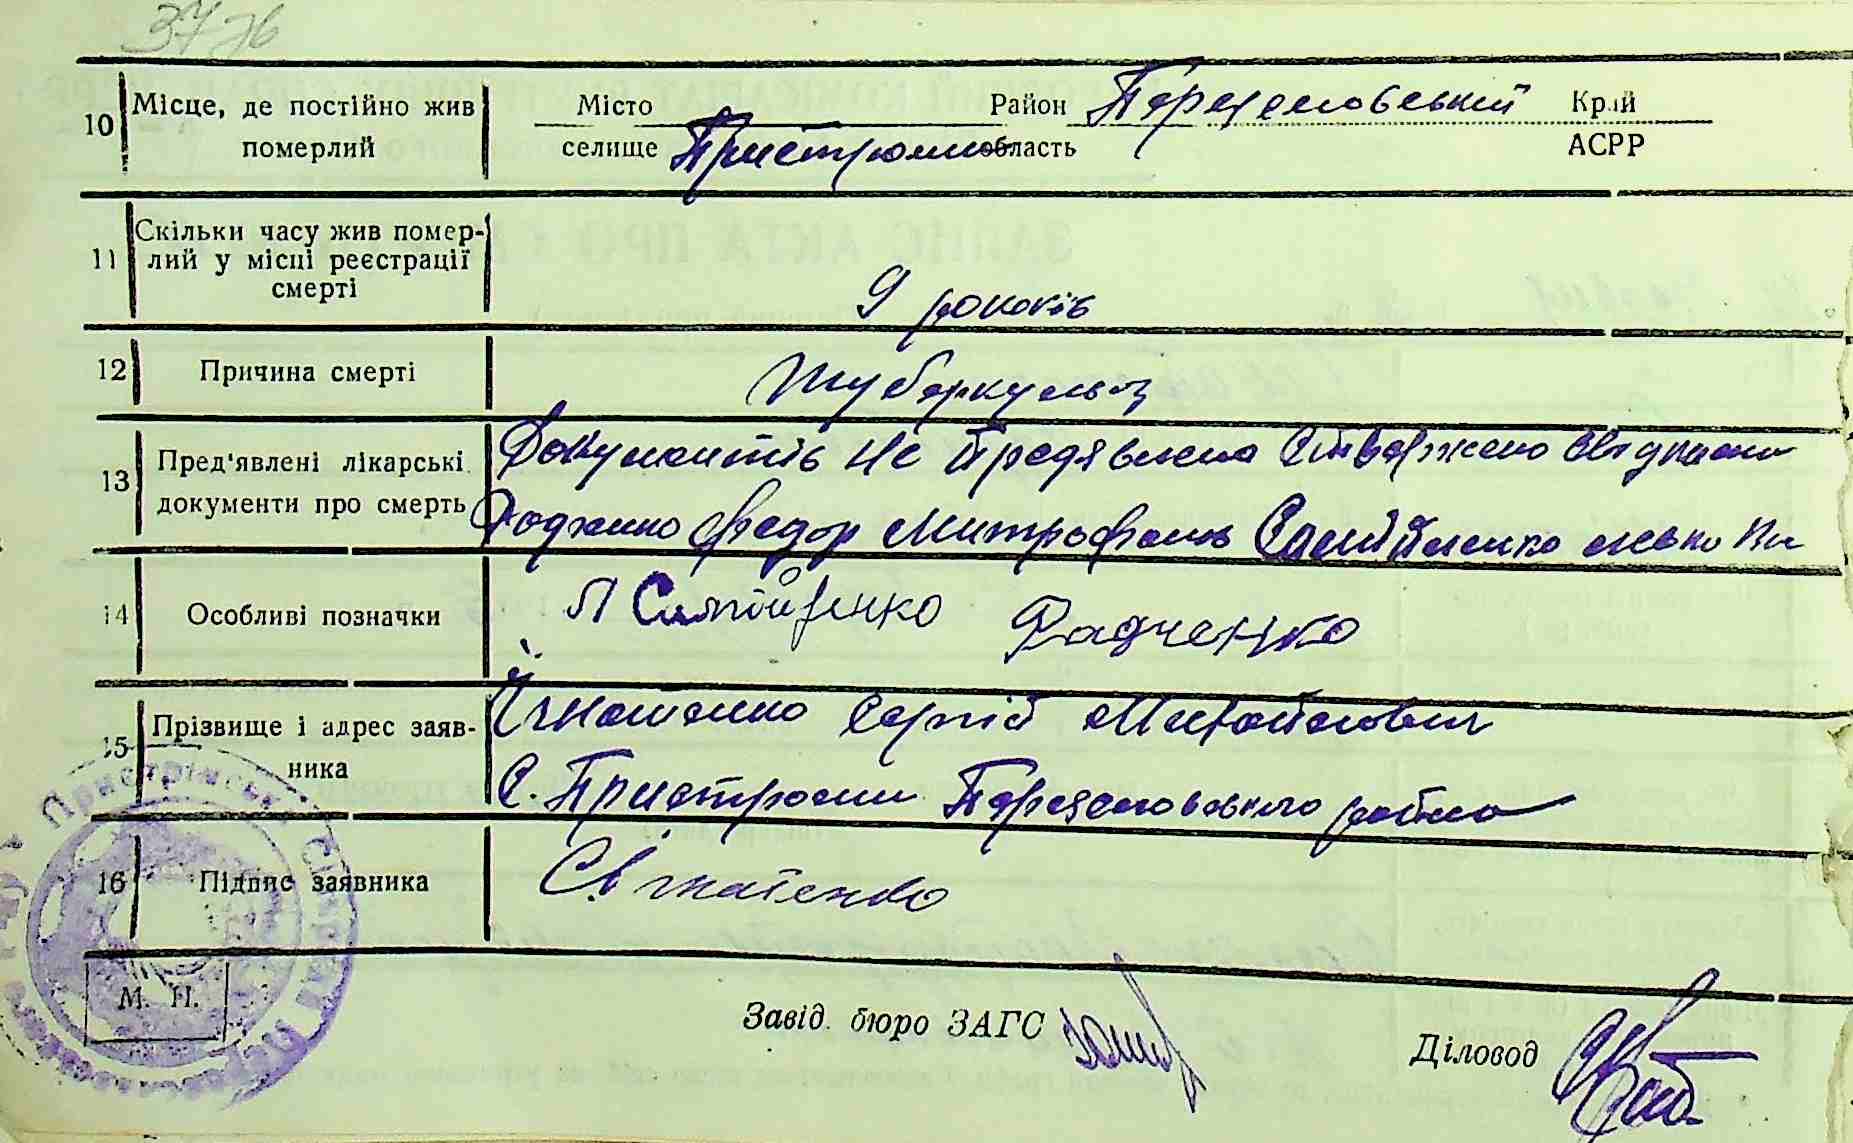 37
10 Місце, де постійно жив померлий
Місто Район Переяславський Край
селище Пристроми область АСРР
11 Скільки часу жив помер-
лий у місці реєстрації
смерті
9 рокохів
12 Причина смерті Туберкульоз
13 Пред'явлені лікарські
документи про смерть
Документів не предявлено Ствержено свідками
Радченко Федор Митрофанов Самійленко
14 Особливі позначки
Л Самойленко Радченко
15 Прізвище і адрес заяв-
ника
Ігнатенко Сергій Михайлович
С. Пристроми Переяславского района
16 Підпис заявника
С Ігнатенко
М. П.
Завід. бюро ЗАГС
Діловод